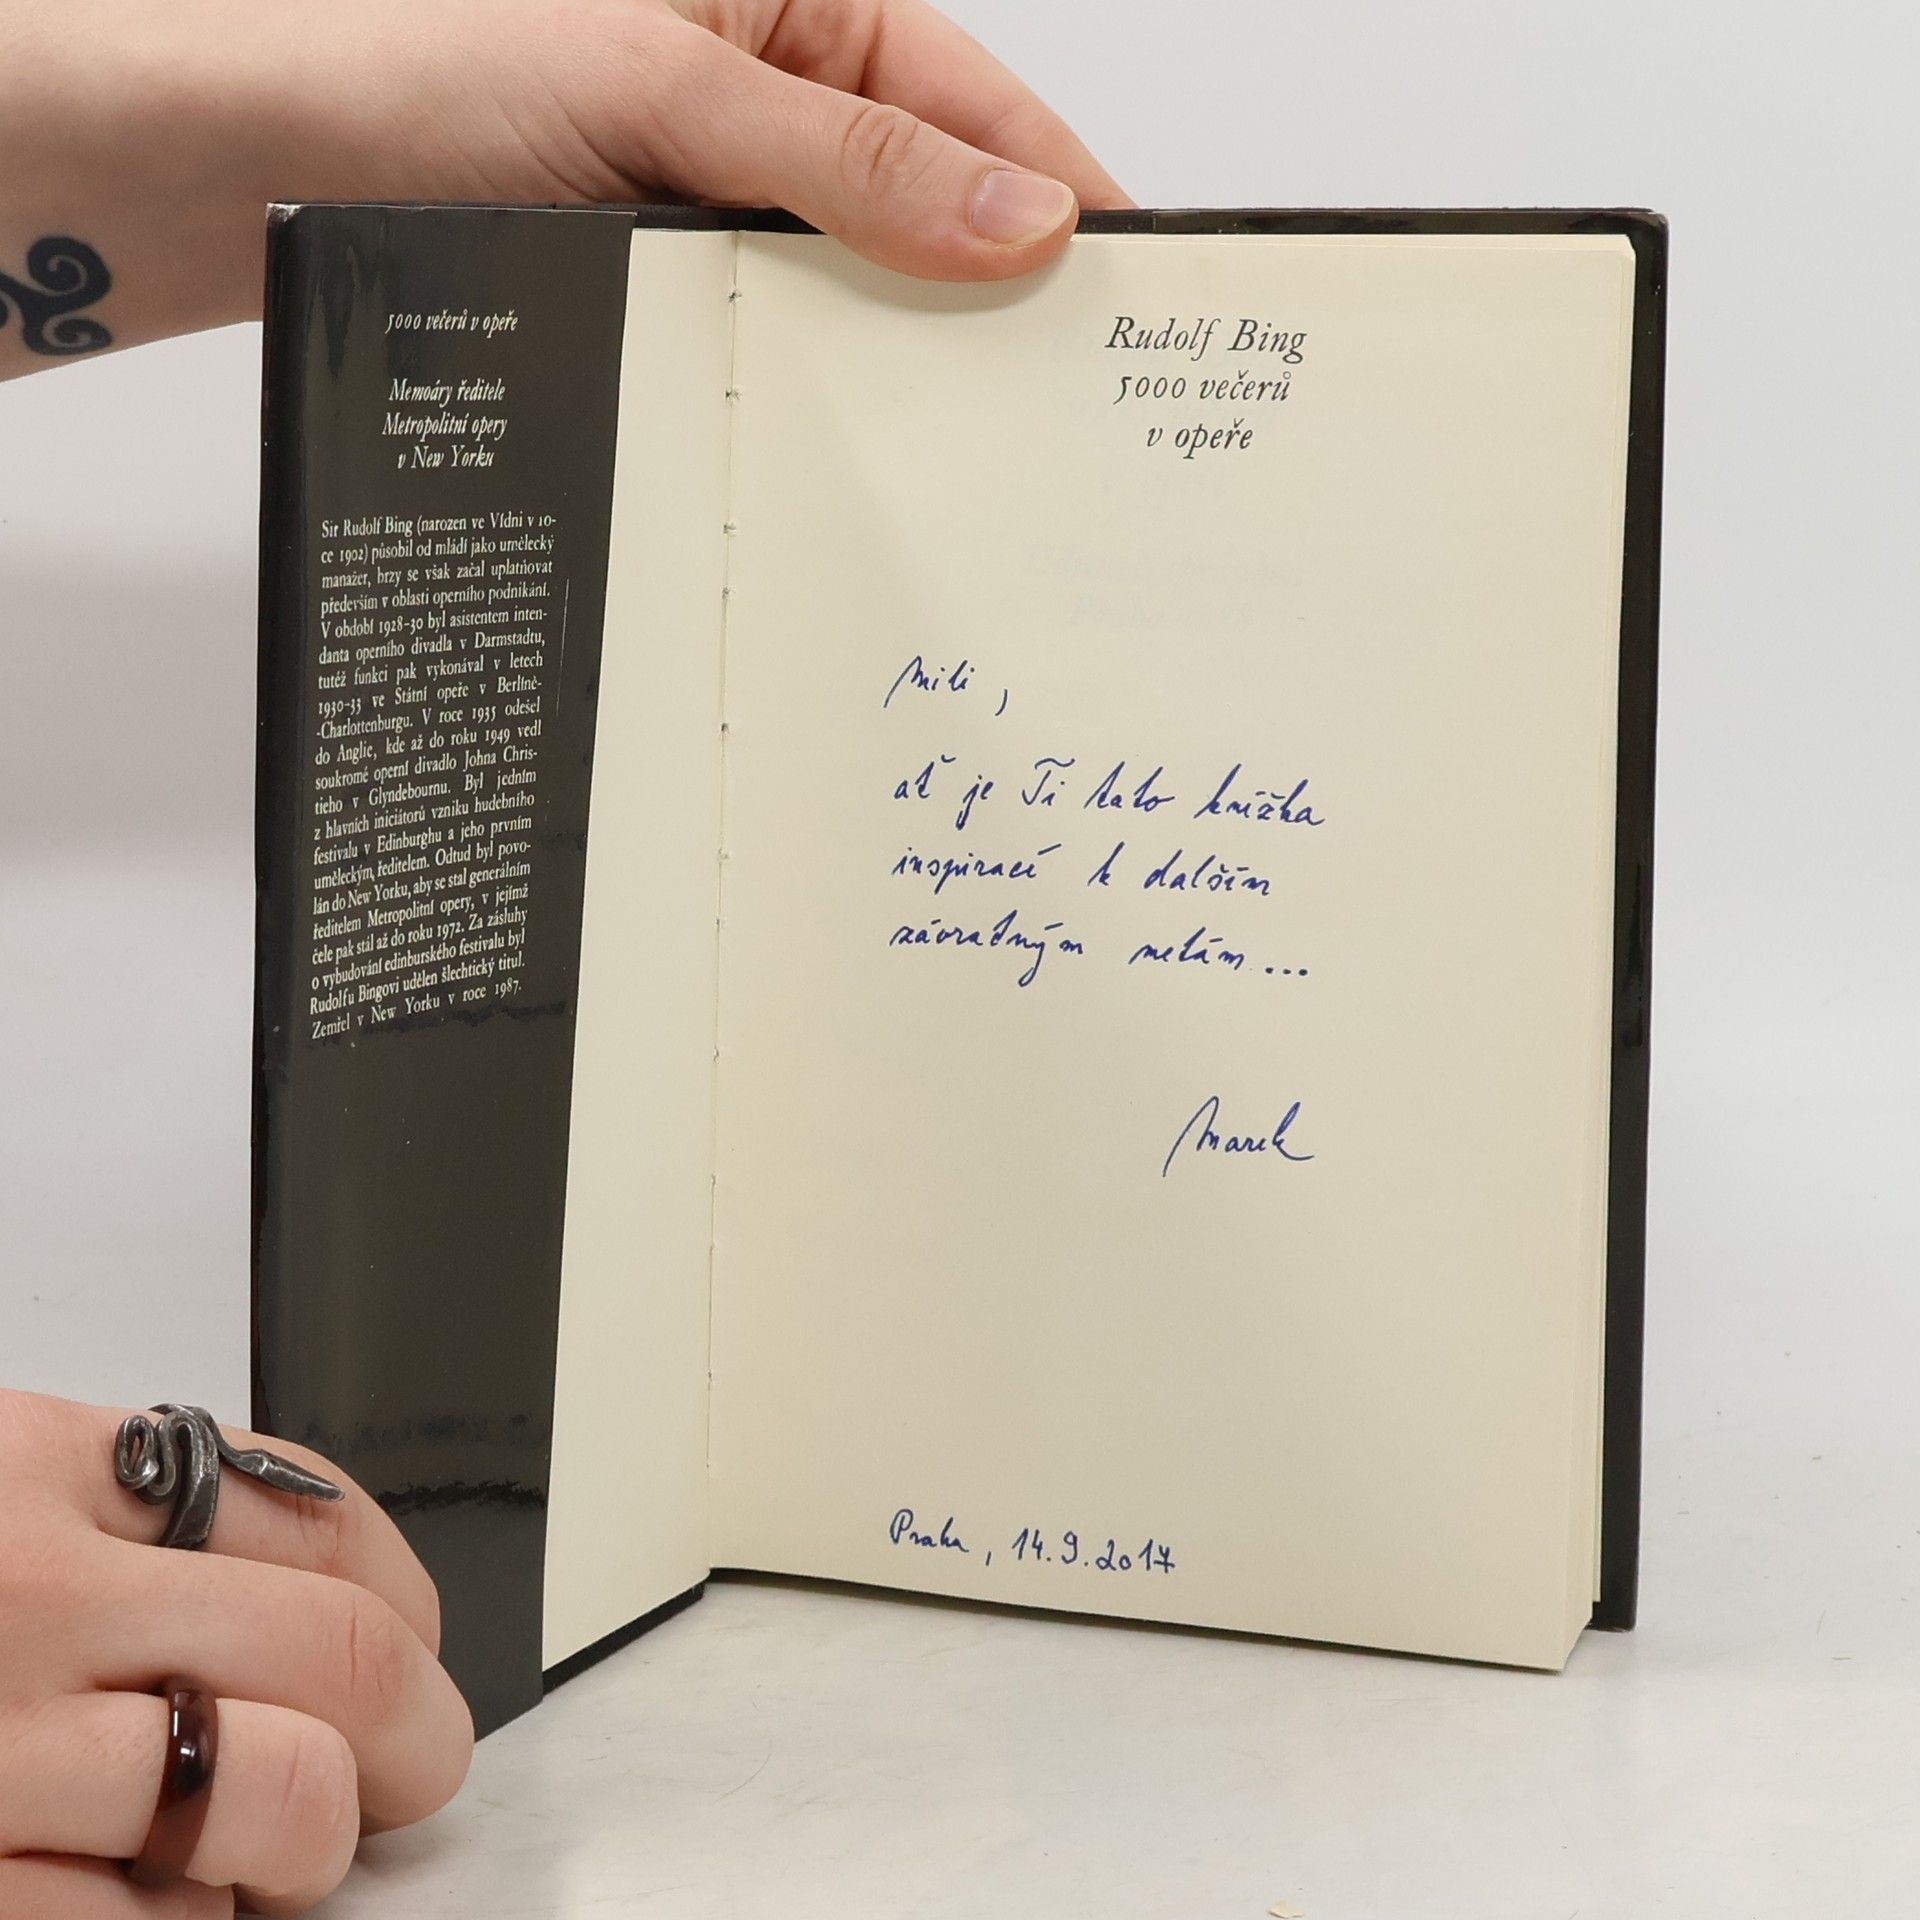 5000 večerů v opeře
Memoáry ředitele
Metropolitní opery
v New Yorku
Sir Rudolf Bing (narozen ve Vídni v ro-
ce 1902) působil od mládí jako umělecký
manažer, brzy se však začal uplatňovat
především v oblasti operního podnikání.
V období 1928-30 byl asistentem inten-
danta operního divadla v Darmstadtu,
tutéž funkci pak vykonával v letech
1930-33 ve Státní opeře v Berlíně-
-Charlottenburgu. V roce 1935 odešel
do Anglie, kde až do roku 1949 vedl
soukromé operní divadlo Johna Chris-
tieho v Glyndebournu. Byl jedním
z hlavních iniciátorů vzniku hudebního
festivalu v Edinburghu a jeho prvním
uměleckým ředitelem. Odtud byl povo-
lán do New Yorku, aby se stal generálním
ředitelem Metropolitní opery, v jejímž
čele pak stál až do roku 1972. Za zásluhy
o vybudování edinburského festivalu byl
Rudolfu Bingovi udělen šlechtický titul.
Zemřel v New Yorku v roce 1987.
Rudolf Bing
5000 večerů
v opeře
Mili,
ať je Ti tato knížka
inspirací k dalším
závratným metám...
Marek
Praha, 14.9.2017